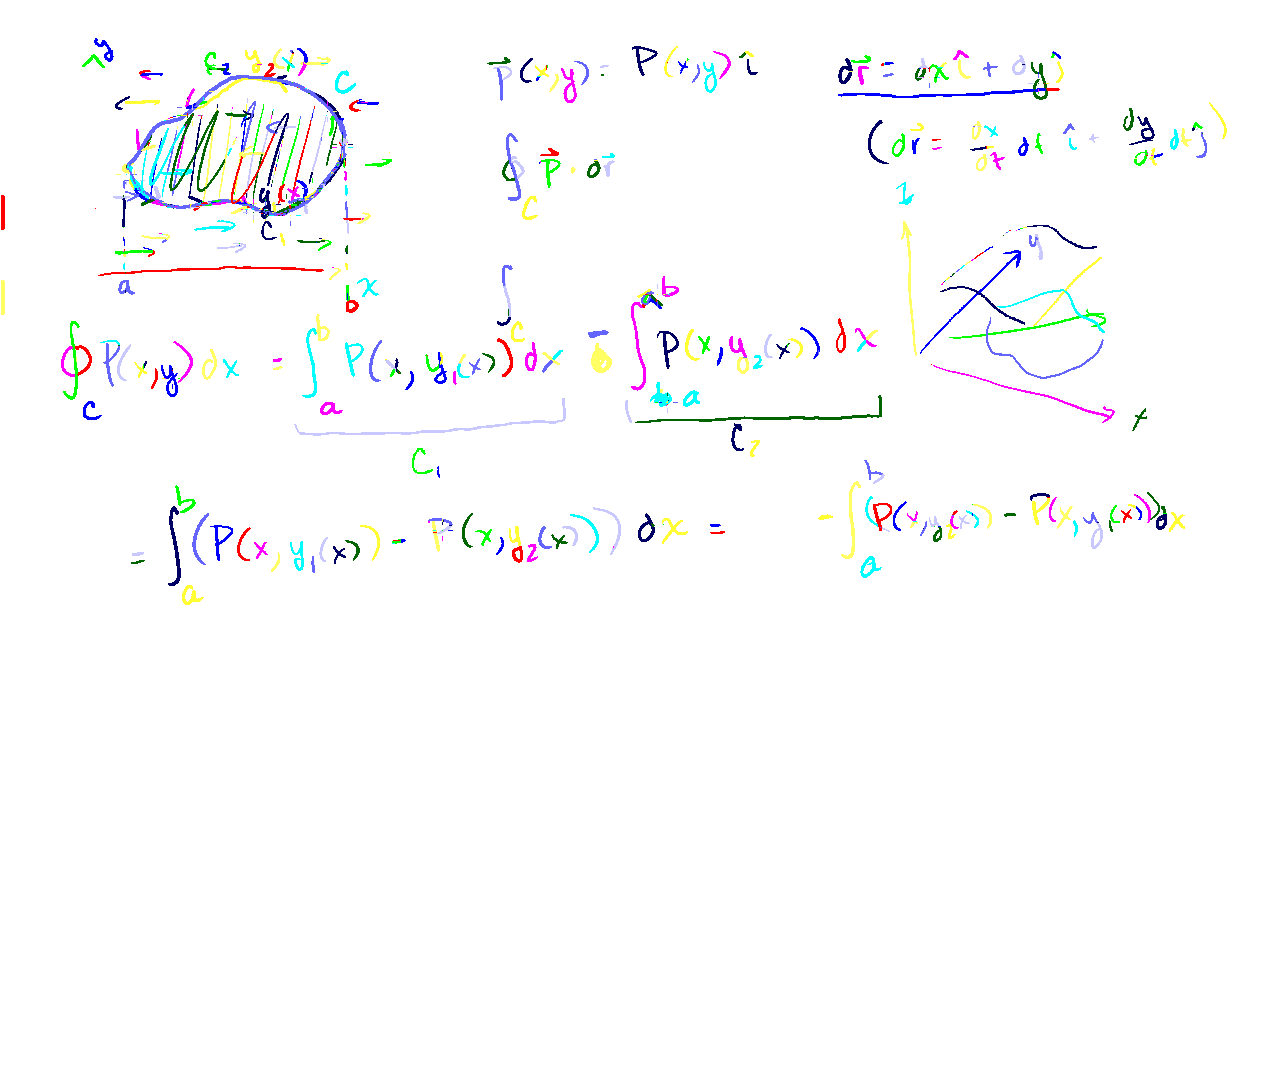 y
C₂ y₂(x)
C
y₁(x)
C₁
a b x
P⃗(x,y) = P(x,y) î
∮_C P⃗ · dr⃗
dr⃗ = dx î + dy ĵ
(dr⃗ = dx/dt dt î + dy/dt dt ĵ)
z
y
x
∫_C
∮_C P(x,y) dx = ∫_a^b P(x, y₁(x)) dx − ∫_a^b P(x, y₂(x)) dx
C₁ C₂
= ∫_a^b (P(x, y₁(x)) − P(x, y₂(x))) dx = − ∫_a^b (P(x, y₂(x)) − P(x, y₁(x))) dx